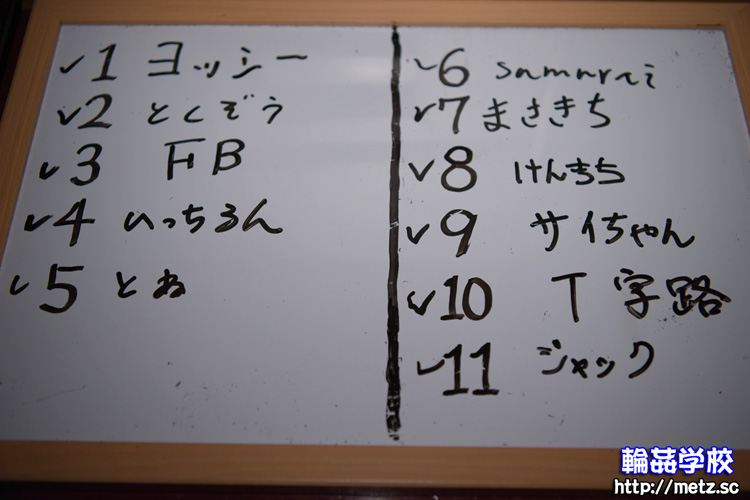 ✓1 ヨッシー
✓2 とくぞう
✓3 FB
✓4 いっちるん
✓5 とね
✓6 samurai
✓7 まさきち
✓8 けんきち
✓9 サイちゃん
✓10 T字路
✓11 ジャック
輪姦学校
http://metz.sc